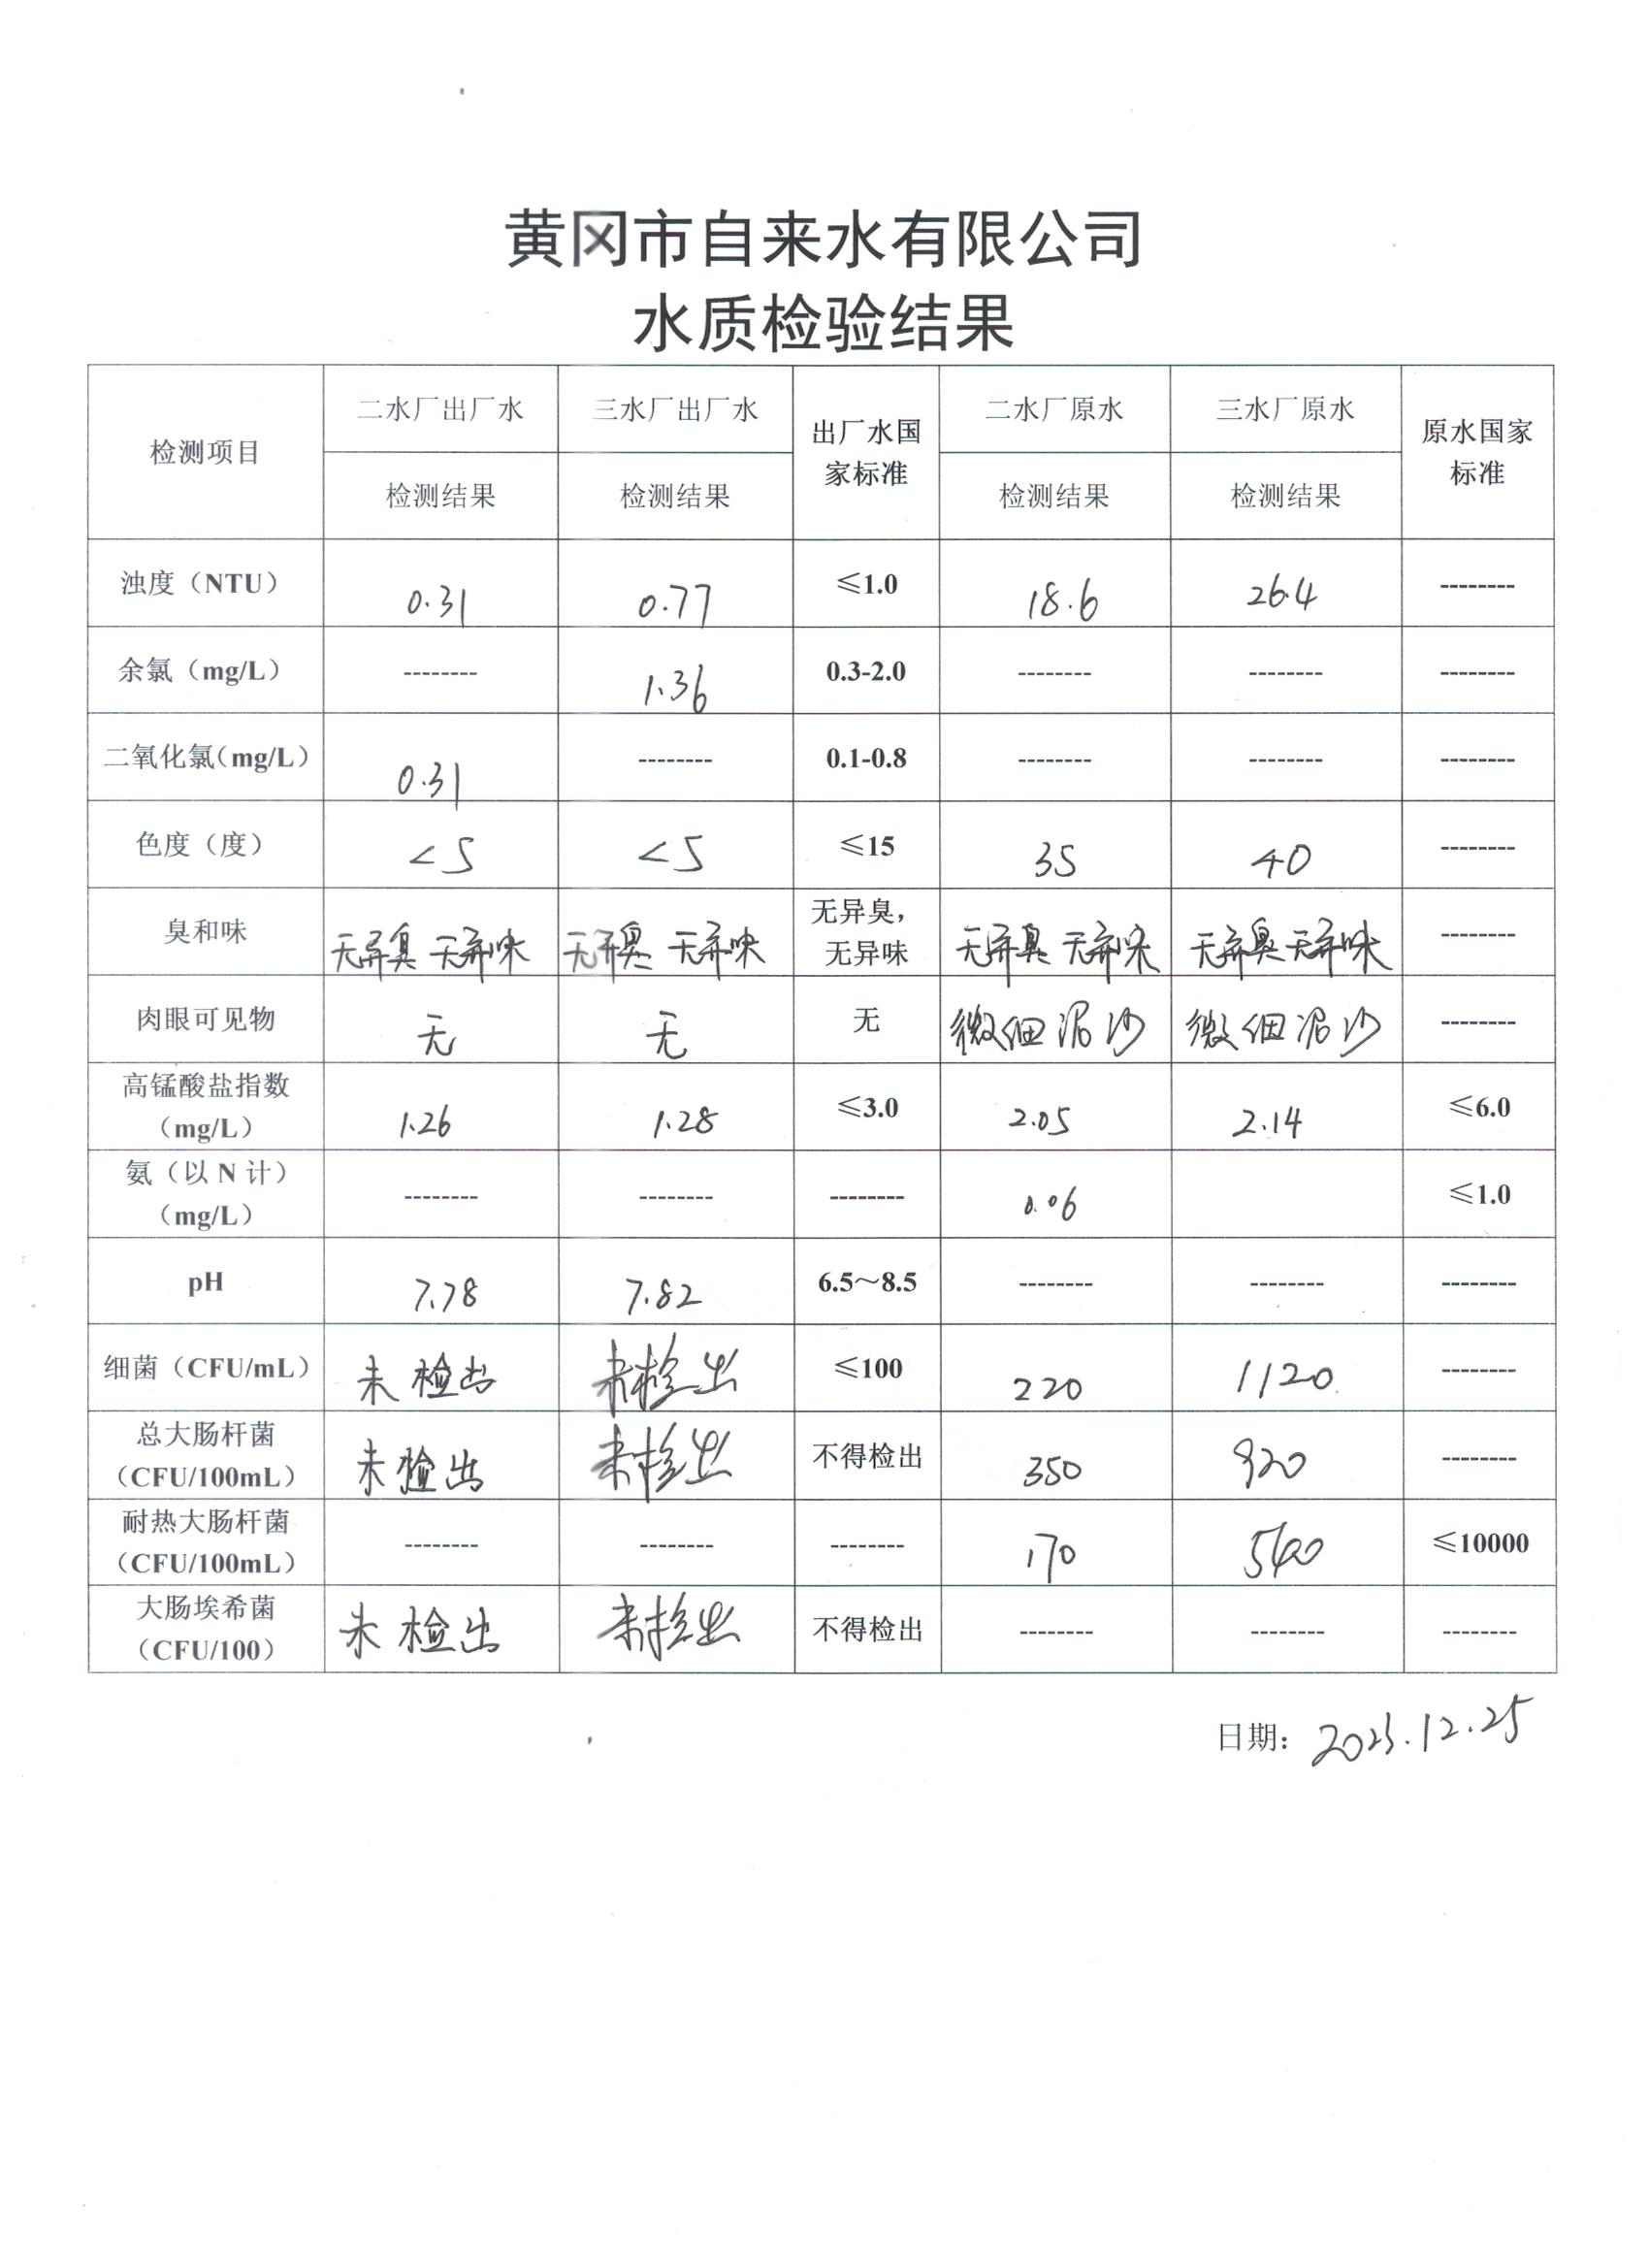 黄冈市自来水有限公司
水质检验结果
检测项目 二水厂出厂水 三水厂出厂水 出厂水国家标准 二水厂原水 三水厂原水 原水国家标准
检测结果 检测结果 检测结果 检测结果
浊度（NTU） 0.31 0.77 ≤1.0 18.6 26.4 --------
余氯（mg/L） -------- 1.36 0.3-2.0 -------- -------- --------
二氧化氯（mg/L） 0.31 -------- 0.1-0.8 -------- -------- --------
色度（度） <5 <5 ≤15 35 40 --------
臭和味 无异臭 无异味 无异臭 无异味 无异臭，无异味 无异臭 无异味 无异臭 无异味 --------
肉眼可见物 无 无 无 微细泥沙 微细泥沙 --------
高锰酸盐指数（mg/L） 1.26 1.28 ≤3.0 2.05 2.14 ≤6.0
氨（以 N 计）（mg/L） -------- -------- -------- 0.06 ≤1.0
pH 7.78 7.82 6.5～8.5 -------- -------- --------
细菌（CFU/mL） 未检出 未检出 ≤100 220 1120 --------
总大肠杆菌（CFU/100mL） 未检出 未检出 不得检出 350 920 --------
耐热大肠杆菌（CFU/100mL） -------- -------- -------- 170 540 ≤10000
大肠埃希菌（CFU/100） 未检出 未检出 不得检出 -------- -------- --------
日期：2023.12.25